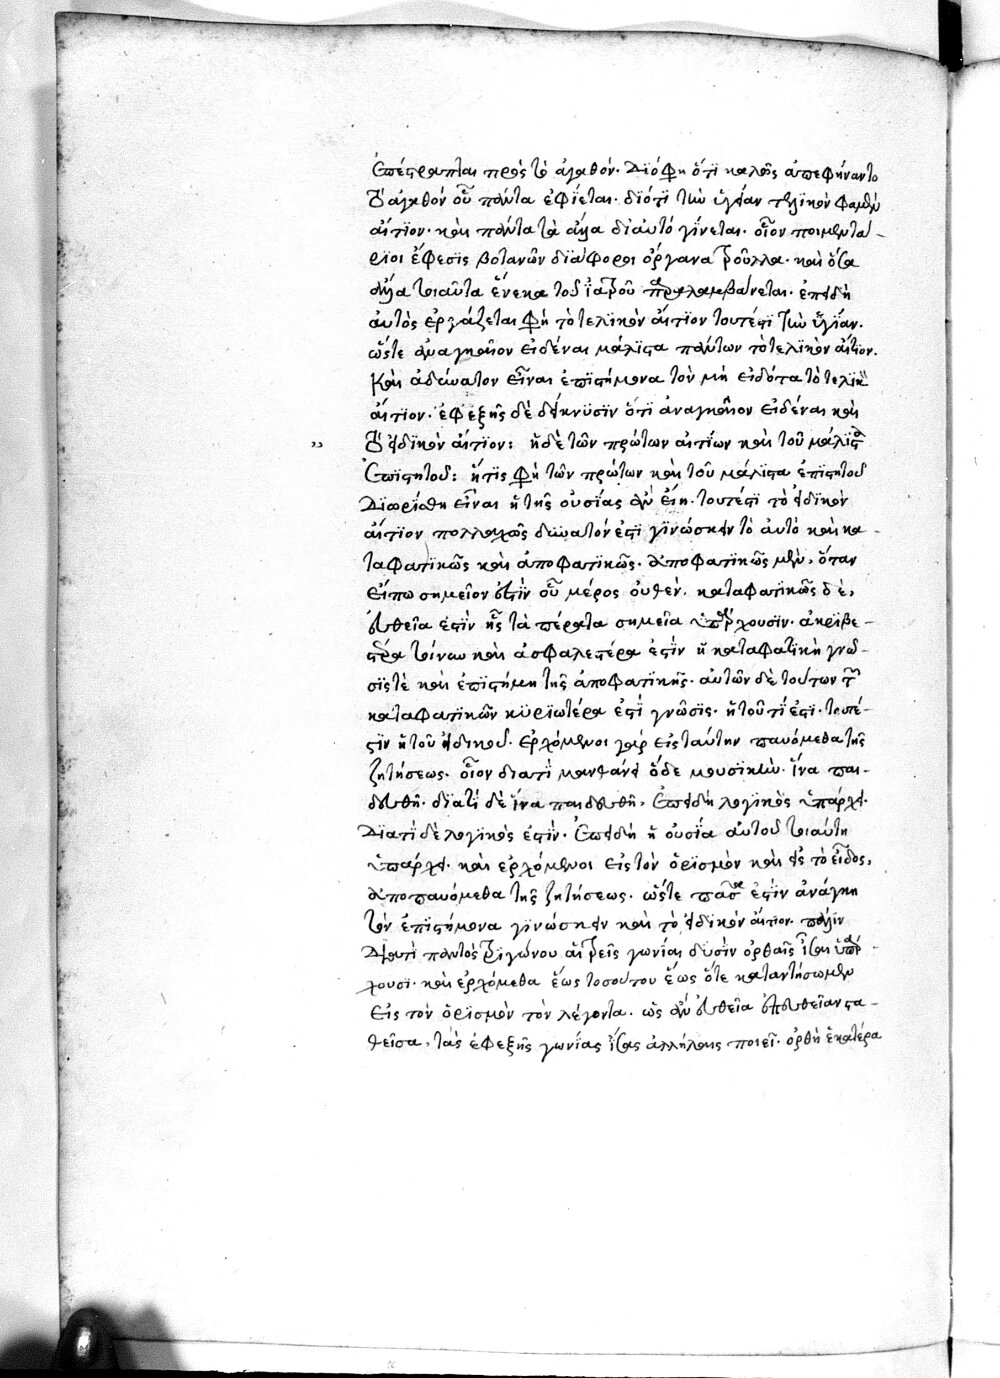 ἐπέτραπται πρὸς τὸ ἀγαθόν. Διό φη ὅτι καλῶς ἀπεφήναντο
τὸ ἀγαθὸν οὗ πάντα ἐφίεται. διότι τὴν ὑγίαν τελικόν φαμεν
αἴτιον. καὶ πάντα τὰ ἄλλα δι αὐτὸ γίνεται. οἷον ποιμεντά-
ριοι ἔφεσις βοτανῶν διάφοροι ὄργανα τροῦλλα. καὶ ὅσα
ἄλλα τοιαῦτα ἕνεκα τοῦ ἰατροῦ παραλαμβάνεται. ἐπειδὴ
αὐτὸς ἐργάζεται φη τὸ τελικὸν αἴτιον τουτέστι τὴν ὑγίαν.
ὥστε ἀναγκαῖον εἰδέναι μάλιστα πάντων τὸ τελικὸν αἴτιον.
Καὶ ἀδύνατον εἶναι ἐπιστήμονα τὸν μὴ εἰδότα τὸ τελικὸν
αἴτιον. ἐφεξῆς δὲ δείκνυσιν ὅτι ἀναγκαῖον εἰδέναι καὶ
τὸ εἰδικὸν αἴτιον: ἡ δὲ τῶν πρώτων αἰτίων καὶ τοῦ μάλιστα
ἐπιστητοῦ: ἥτις φη τῶν πρώτων καὶ τοῦ μάλιστα ἐπιστητοῦ
Διωρίσθη εἶναι ἡ τῆς οὐσίας ἂν εἴη. τουτέστι τὸ εἰδικὸν
αἴτιον πολλαχῶς δυνατόν ἐστι γινώσκειν τὸ αὐτὸ καὶ κα-
ταφατικῶς καὶ ἀποφατικῶς. ἀποφατικῶς μὲν, ὅταν
εἴπω σημεῖον ἐστὶν οὗ μέρος οὐθέν. καταφατικῶς δὲ,
εὐθεῖα ἐστὶν ἧς τὰ πέρατα σημεῖα ὑπάρχουσιν. ἀκριβε-
στέρα τοίνυν καὶ ἀσφαλεστέρα ἐστὶν ἡ καταφατικὴ γνῶ-
σίς τὲ καὶ ἐπιστήμη τῆς ἀποφατικῆς. αὐτῶν δὲ τούτων τῶν
καταφατικῶν κυριωτέρα ἐστὶ γνῶσις. ἡ τοῦ τί ἐστι. τουτέ-
στιν ἡ τοῦ εἰδικοῦ. ἐρχόμενοι γὰρ εἰς ταύτην παυόμεθα τῆς
ζητήσεως. οἷον διατί μανθάνει ὅδε μουσικὴν. ἵνα παι-
δευθῆ. διατί δὲ ἵνα παιδευθῆ, ἐπειδὴ λογικὸς ὑπάρχει.
Διατὶ δὲ λογικὸς ἐστὶν. ἐπειδὴ ἡ οὐσία αὐτοῦ τοιαύτη
ὑπάρχει. καὶ ἐρχόμενοι εἰς τὸν ὁρισμὸν καὶ εἰς τὸ εἶδος,
ἀποπαυόμεθα τῆς ζητήσεως. ὥστε πᾶσα ἐστὶν ἀνάγκη
τὸν ἐπιστήμονα γινώσκειν καὶ τὸ εἰδικὸν αἴτιον. πάλιν
Διατὶ παντὸς τριγώνου αἱ τρεῖς γωνίαι δυσὶν ὀρθαῖς ἴσαι ὑπάρ-
χουσι. καὶ ἐρχόμεθα ἕως τοσούτου ἕως ὅτε καταντήσωμεν
εἰς τὸν ὁρισμὸν τὸν λέγοντα. ὡς ἂν εὐθεῖα ἐπ εὐθεῖαν στα-
θεῖσα, τὰς ἐφεξῆς γωνίας ἴσας ἀλλήλαις ποιεῖ. ὀρθὴ ἑκατέρα